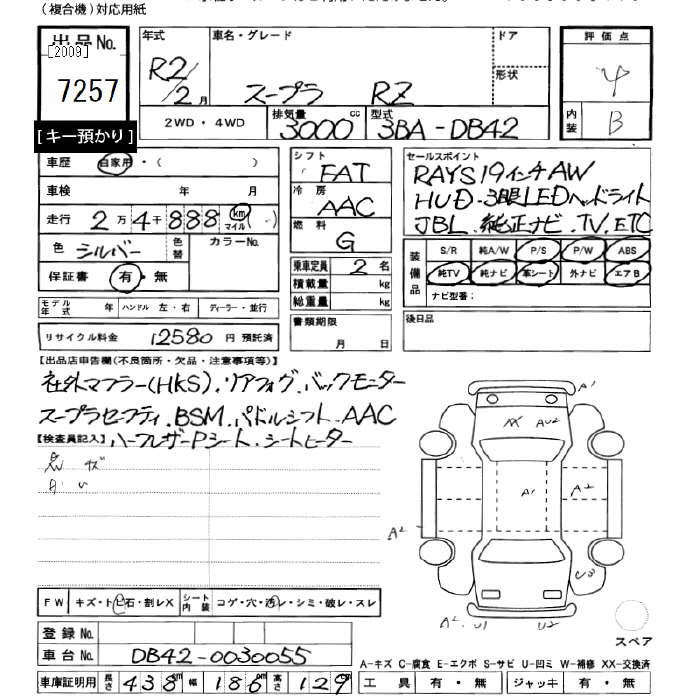 (複合機)対応用紙
出品No. [2009] 7257
[キー預かり]
年式 R2/2月
車名・グレード スープラ RZ
ドア
形状
評価点 4
内装 B
2WD ・ 4WD
排気量 3000cc
型式 3BA-DB42
車歴 自家用・( )
車検 年 月
走行 2万4千888 km マイル ( )
色 シルバー 色替
カラーNo.
保証書 有・無
モデル年式 年 ハンドル 左・右 ディーラー・並行
リサイクル料金 12580 円 預託済
シフト FAT
冷房 AAC
燃料 G
乗車定員 2 名
積載量 kg
総重量 kg
書類期限
月 日
セールスポイント
RAYS19インチAW
HUD・3眼LEDヘッドライト
JBL.純正ナビ.TV.ETC
装備品 S/R 純A/W P/S P/W ABS
純TV 純ナビ 革シート 外ナビ エアB
ナビ型番:
後日品
【出品店申告欄(不良箇所・欠品・注意事項等)】
社外マフラー(HKS).リアフォグ.バックモニター
スープラセーフティ.BSM.パドルシフト.AAC
【検査員記入】ハーフレザーPシート.シートヒーター
A1
XX AU2
A1 A2
A2
U3
A2 U1 U2
スペア
FW キズ・トビ石・割レX シート内装 コゲ・穴・汚レ・シミ・破レ・スレ
登録No.
車台No. DB42-0030055
A-キズ C-腐食 E-エクボ S-サビ U-凹ミ W-補修 XX-交換済
車庫証明用 長さ 438cm 幅 186cm 高さ 129cm
工具 有・無 ジャッキ 有・無